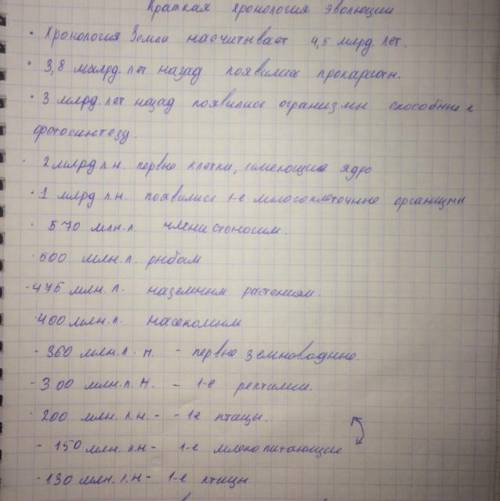 Краткая хронология эволюции
• Хронология Земли насчитывает 4,5 млрд. лет.
• 3,8 млрд. лет назад появились прокариоты.
• 3 млрд. лет назад появились организмы способные к
фотосинтезу.
• 2 млрд л.н. первые клетки, имеющие ядро
• 1 млрд л.н. появились 1-е многоклеточные организмы
• 570 млн.л. членистоногим.
• 500 млн.л. рыбам
• 475 млн.л. наземным растениям.
• 400 млн.л. насекомым
- 360 млн.л.н. - первые земноводные.
- 300 млн.л.н. - 1-е рептилии.
• 200 млн.л.н. - - 1е птицы.
- 150 млн.л.н - 1-е млекопитающие
- 130 млн.л.н - 1-е птицы